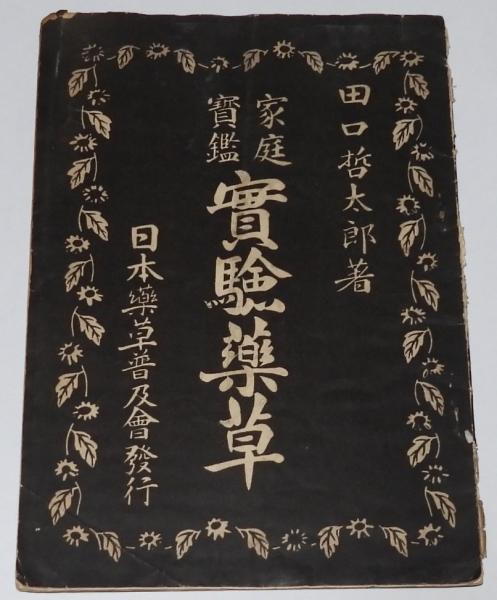 田口哲太郎著
家庭
寳鑑
實驗藥草
日本藥草普及會發行